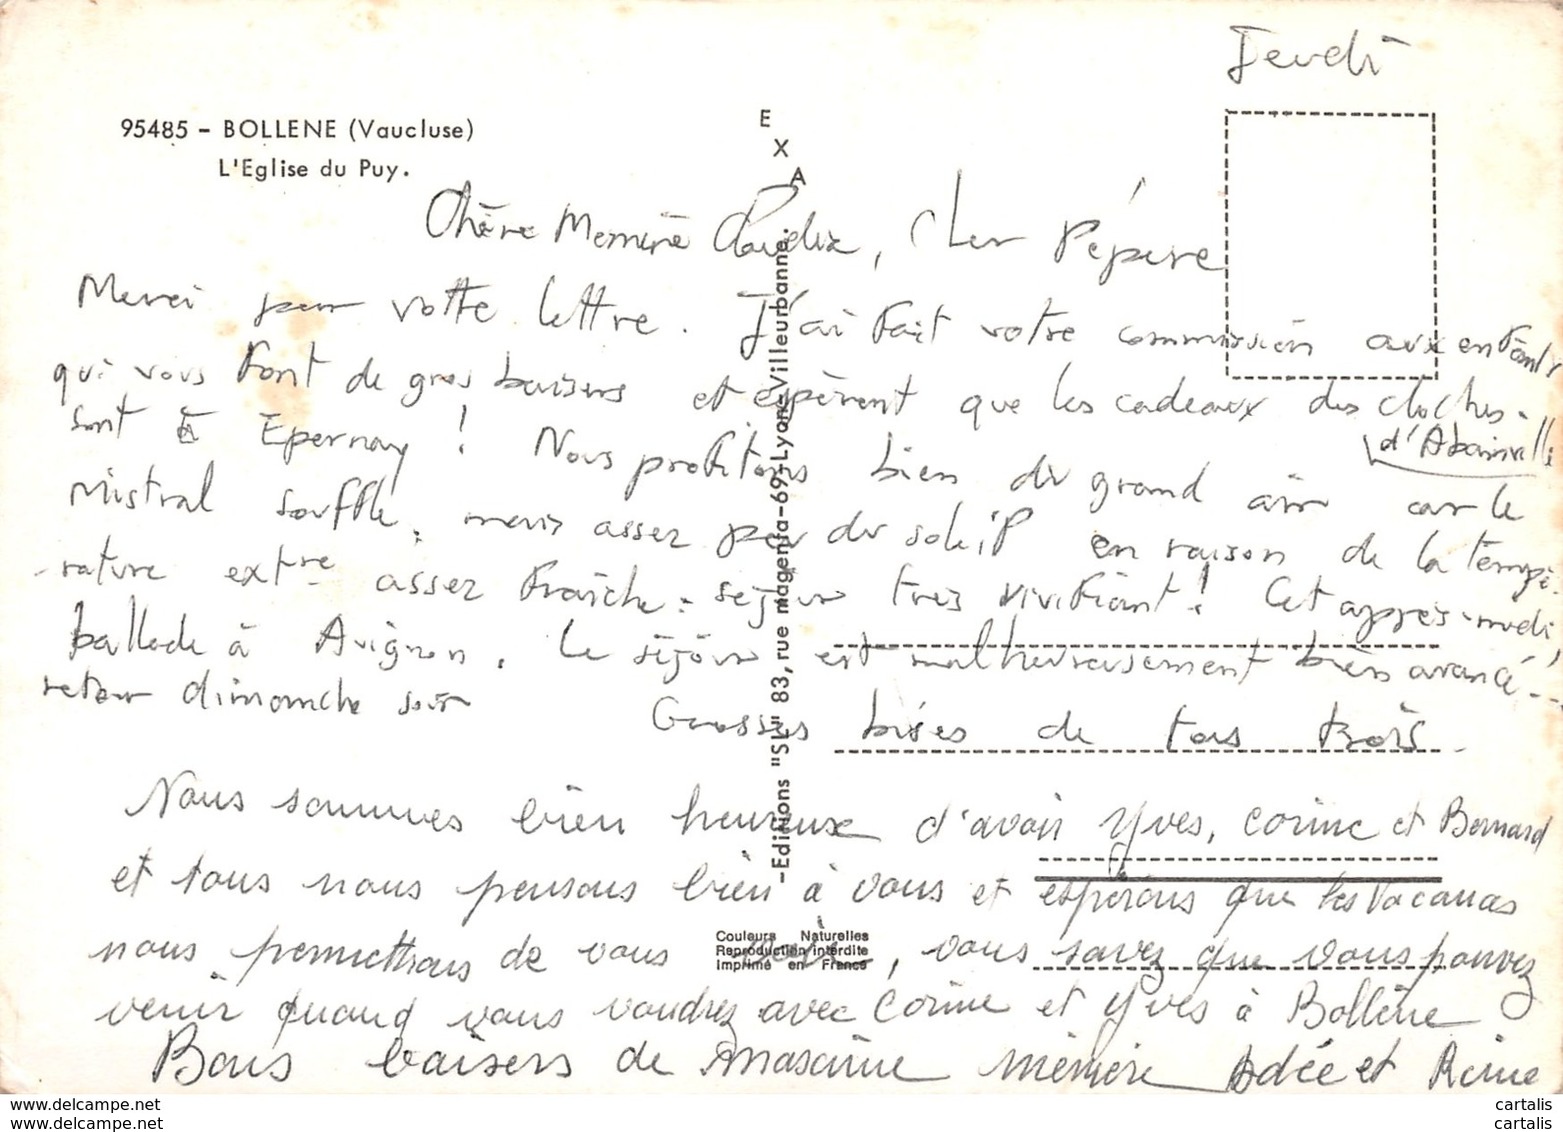 Jeudi
95485 - BOLLENE (Vaucluse)
L'Eglise du Puy.
EXA
Chère Mémère Claudia, Cher Pépère
Merci pour votre lettre. J'ai fait votre commission aux enfants
qui vous font de gros baisers et espèrent que les cadeaux des cloches
d'Abainville
sont à Epernay ! Nous profitons bien du grand air car le
Mistral souffle, mais assez peu du soleil en raison de la tempé-
rature extre assez fraîche : séjour très vivifiant ! Cet après-midi
ballade à Avignon. Le séjour est malheureusement bien avancé !...
retour dimanche soir Grosses bises de tous trois.
Nous sommes bien heureux d'avoir Yves, Corine et Bernard
et tous nous pensons bien à vous et espérons que les vacances
nous permettrons de vous voir, vous savez que vous pouvez
venir quand vous voudrez avec Corine et Yves à Bollène
Bons baisers de mémère Adée et Reine
-Editions "SL" 83, rue magenta-69-Lyon-Villeurbanne.
Couleurs Naturelles
Reproduction interdite
Imprimé en France
www.delcampe.net
cartalis
www.delcampe.net
cartalis